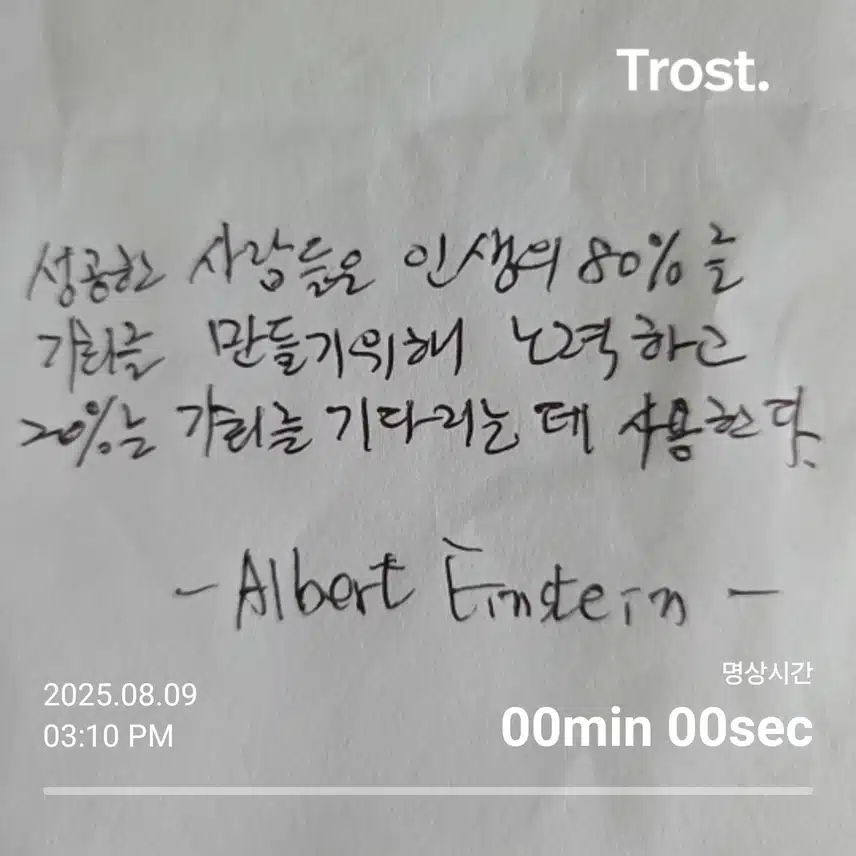 Trost.
성공한 사람들은 인생의 80%를
기회를 만들기위해 노력하고
20%는 기회를 기다리는 데 사용한다.
- Albert Einstein -
명상시간
2025.08.09
03:10 PM
00min 00sec